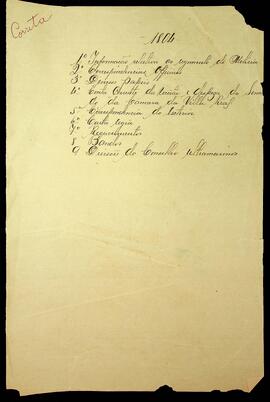 Correta
1804
1º Informações relativas ao regimento de Milicia
2º Correspondencias Officiaes
3º Diversos Papeis
4º Conta Corrente da receita e despeza do Sena
do da Camara da Villa Real
5º Correspondencia do Exterior
6º Carta regia
7º Requerimentos
8 Bandos
9 Decisões do Conselho Ultramarino